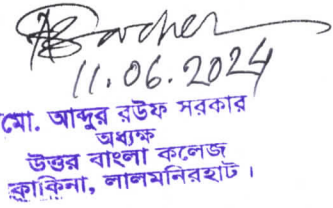 11.06.2024
মো. আব্দুর রউফ সরকার
অধ্যক্ষ
উত্তর বাংলা কলেজ
কাকিনা, লালমনিরহাট।